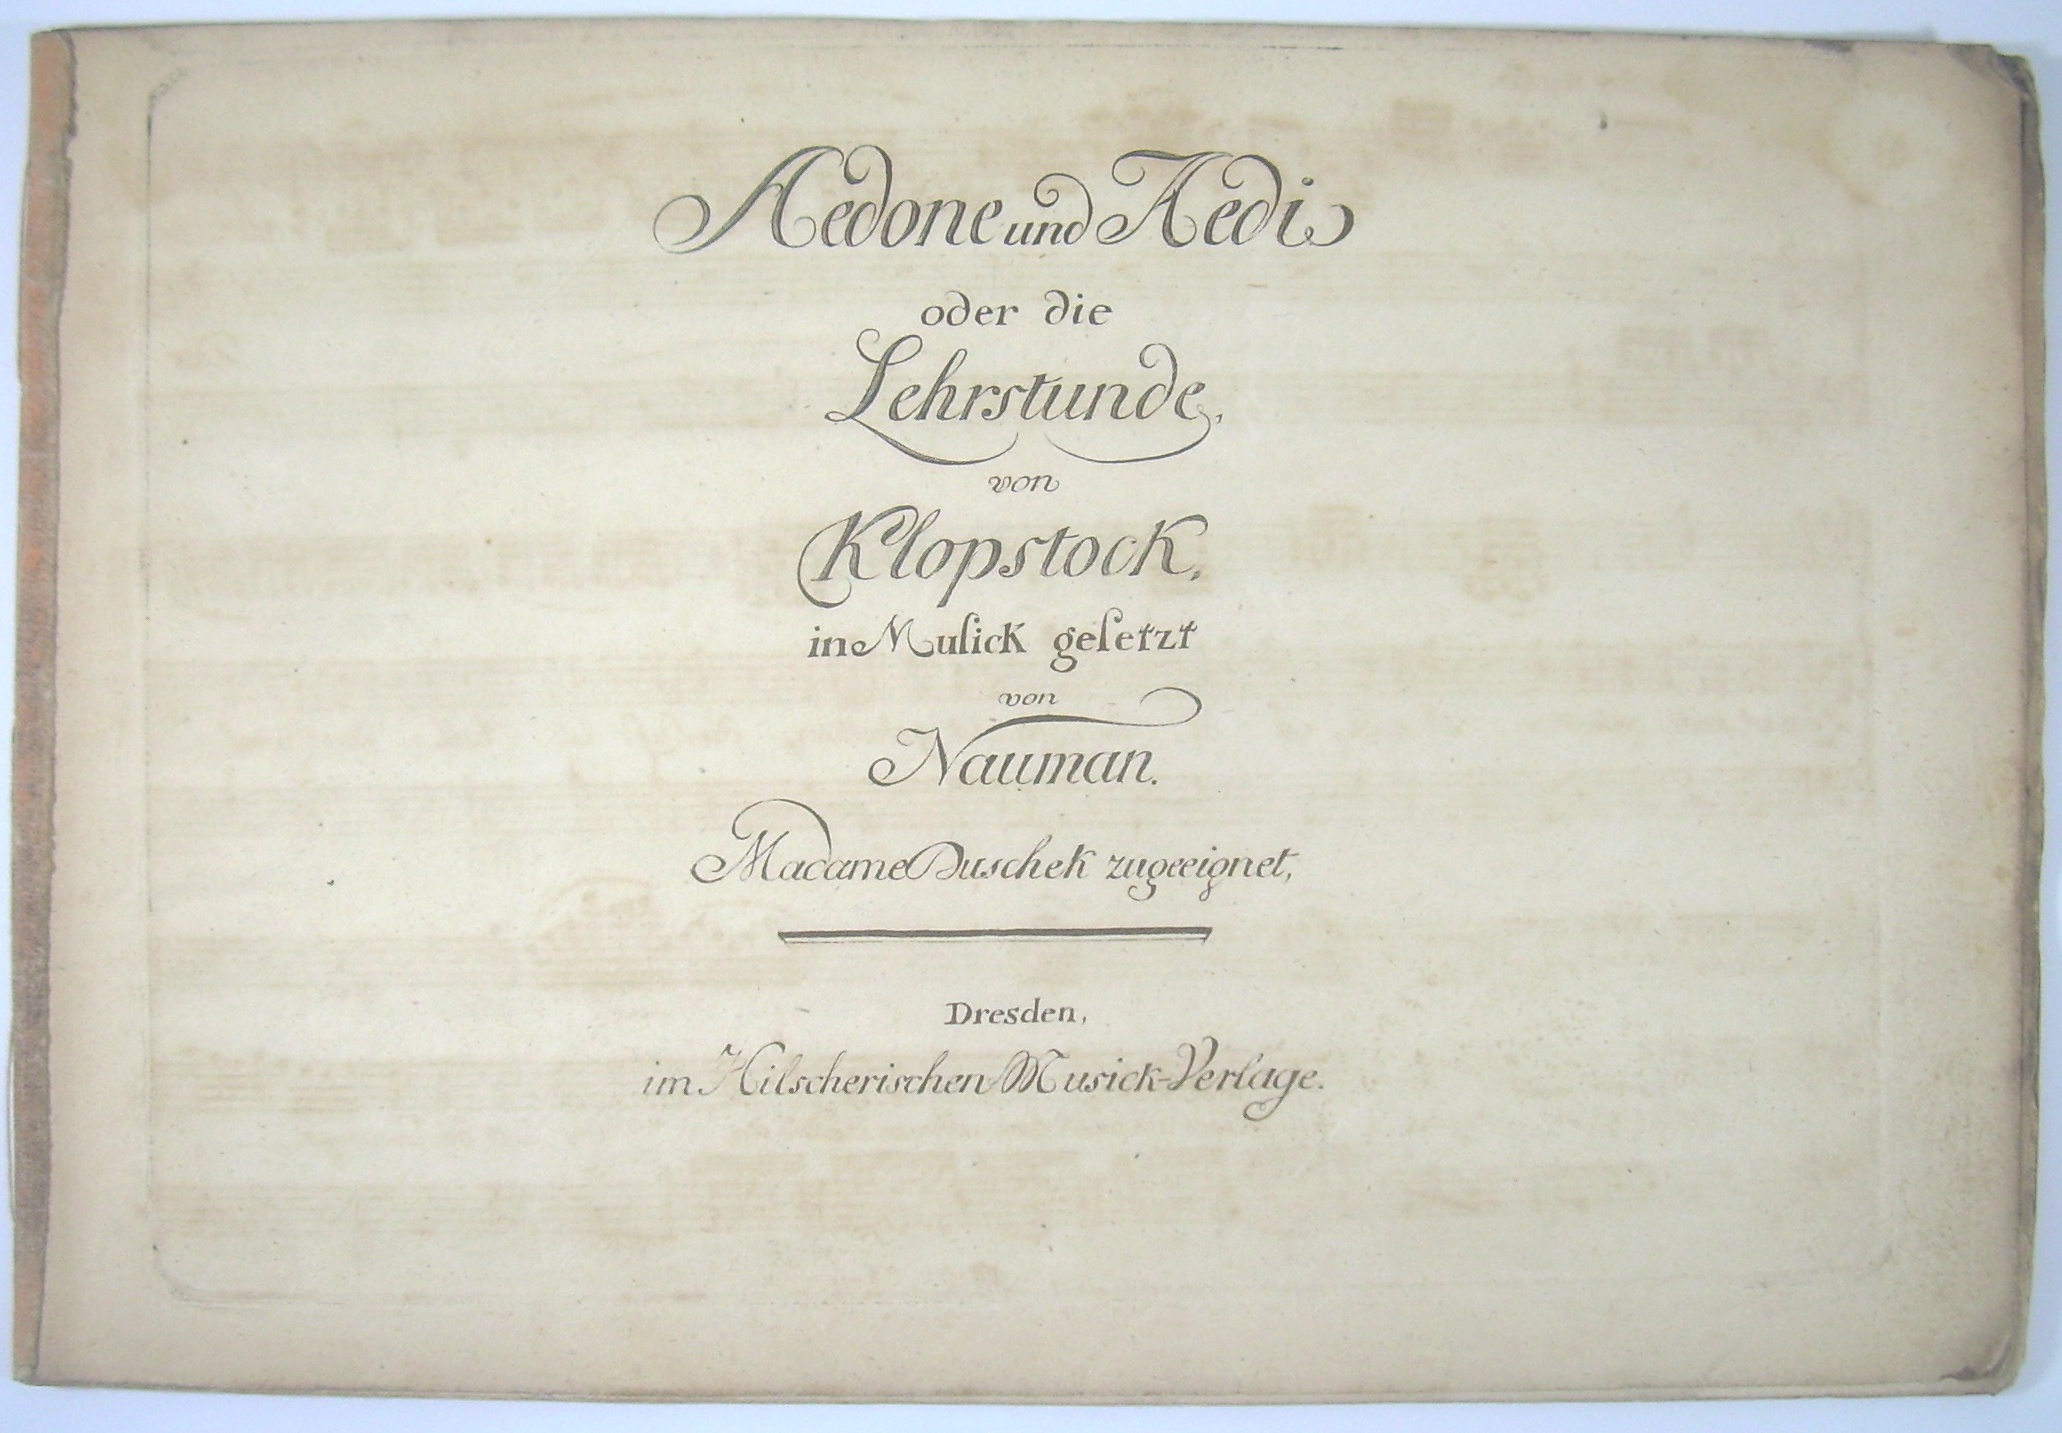 Aedone und Aedi
oder die
Lehrstunde,
von
Klopstock,
in Muſick geſetzt
von
Nauman.
Madame Duschek zugeeignet,
Dresden,
im Hilscherischen Musick-Verlage.